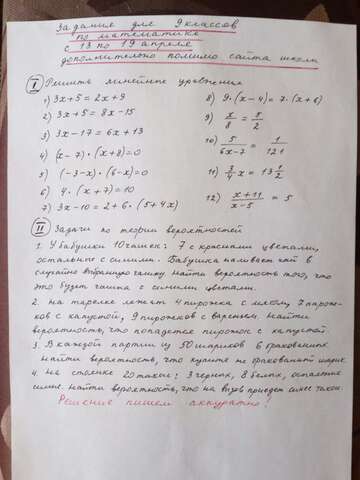 Задание для 9 классов
по математике
с 13 по 19 апреля
дополнительно помимо сайта школы
I Решить линейные уравнения
1) 3x+5=2x+9
2) 3x+5=8x-15
3) 3x-17=6x+13
4) (x-7)·(x+8)=0
5) (-3-x)·(6-x)=0
6) 4·(x+7)=10
7) 3x-10=2+6·(5+4x)
8) 9·(x-4)=7·(x+6)
9) x/8 = 5/2
10) 5/(6x-7) = 1/121
11) 3/4 x = 13 1/2
12) (x+11)/(x-5) = 5
II Задачи по теории вероятностей
1. У бабушки 10 чашек: 7 с красными цветами,
остальные с синими. Бабушка наливает чай в
случайно выбранную чашку. Найти вероятность того, что
это будет чашка с синими цветами.
2. На тарелке лежат 4 пирожка с мясом, 7 пирож-
ков с капустой, 9 пирожков с вареньем. Найти
вероятность, что попадется пирожок с капустой.
3. В каждой партии из 50 шариков 6 бракованных
найти вероятность, что купите не бракованный шарик
4. На стоянке 20 такси: 3 черных, 8 белых, остальные
синие. Найти вероятность, что на вызов приедет синее такси.
Решение пишем аккуратно!